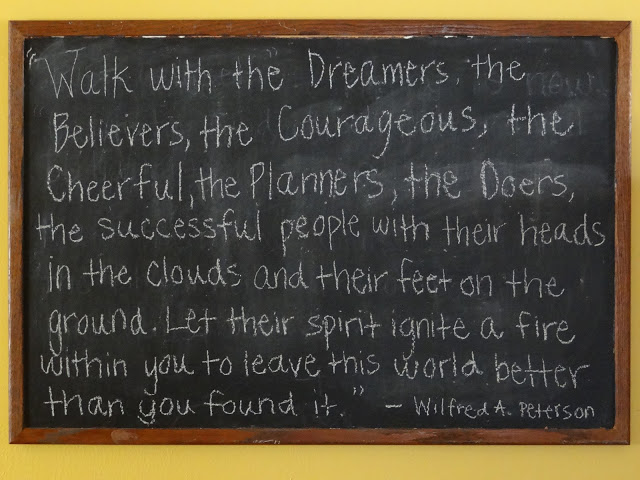 "Walk with the Dreamers, the
Believers, the Courageous, the
Cheerful, the Planners, the Doers,
the successful people with their heads
in the clouds and their feet on the
ground. Let their spirit ignite a fire
within you to leave this world better
than you found it." – Wilfred A. Peterson